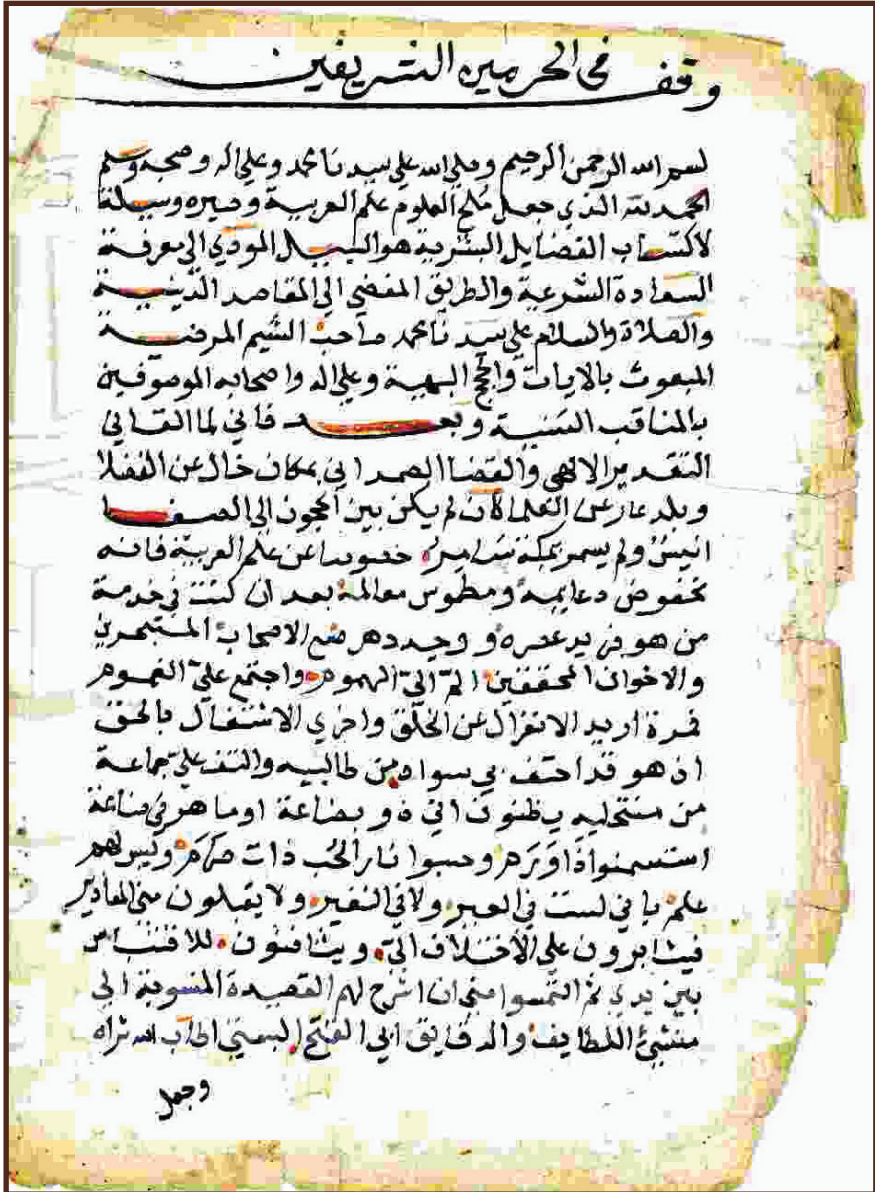 وقف في الحرمين الشريفين
بسم الله الرحمن الرحيم وصلى الله على سيدنا محمد وعلى اله وصحبه وسلم
الحمد لله الذي جعل ملح العلوم علم العربية وصيره وسيلة
لاكتساب الفضايل البشرية هو السبيل المودي الى معرفة
السعادة الشرعية والطريق المفضي الى المقاصد الدينية
والصلاة والسلام على سيدنا محمد صاحب الشيم المرضية
المبعوث بالايات والحجج البهية وعلى اله واصحابه الموصوفين
بالمناقب السنية وبعد فاني لما القاني
التقدير الالهي والقضا الصمداني بمكان خال عن الفضلا
وبلد عار عن العلما كان لم يكن بين الحجون الى الصفا
انيس ولم يسمر بمكة سامر خصوصا عن علم العربية فانه
مخفوض دعايمه ومطموس معالمه بعد ان كنت في خدمة
من هو فريد عصره ووحيد دهره مع الاصحاب المتبحرين
والاخوان المحققين الم الي الهموم واجتمع علي الغموم
فمرة اريد الانعزال عن الخلق واخري الاشتغال بالحق
اذ هو قد احتف بي سواد من طالبيه والتف علي جماعة
من منتحليه يظنون اني ذو بضاعة او ماهر في صناعة
استسمنوا ذا ورم وحسبوا نار الحب ذات ضرم وليس لهم
علم باني لست في العير ولا في النفير ولا يقبلون مني المعاذير
فيثابرون على الاختلاف الي ويتنافسون للاقتباس
بين يدي ثم التمسوا مني ان اشرح لهم القصيدة المنسوبة الى
منشئ اللطايف والدقايق ابي الفتح البستي اطاب الله ثراه
وجعل